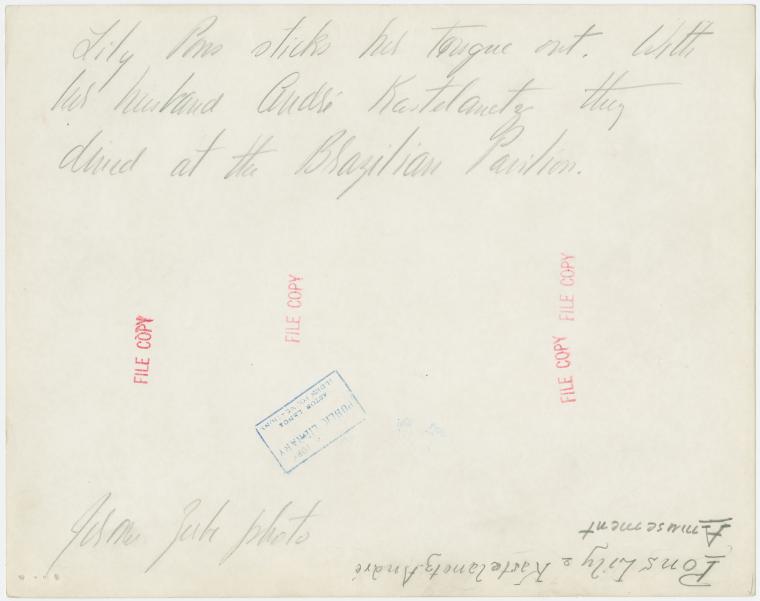 Lily Pons sticks her tongue out. With
her husband André Kostelanetz they
dined at the Brazilian Pavilion.
FILE COPY
FILE COPY
FILE COPY
FILE COPY
PUBLIC LIBRARY
ASTOR LENOX
photo
Amusement
Pons Lily & Kostelanetz André